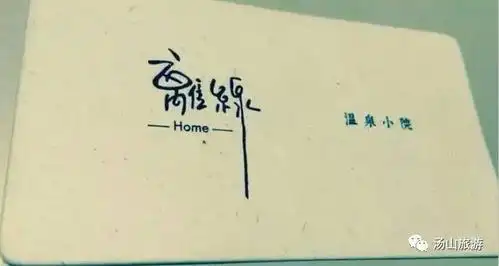 離線
— Home —
温泉小院
汤山旅游